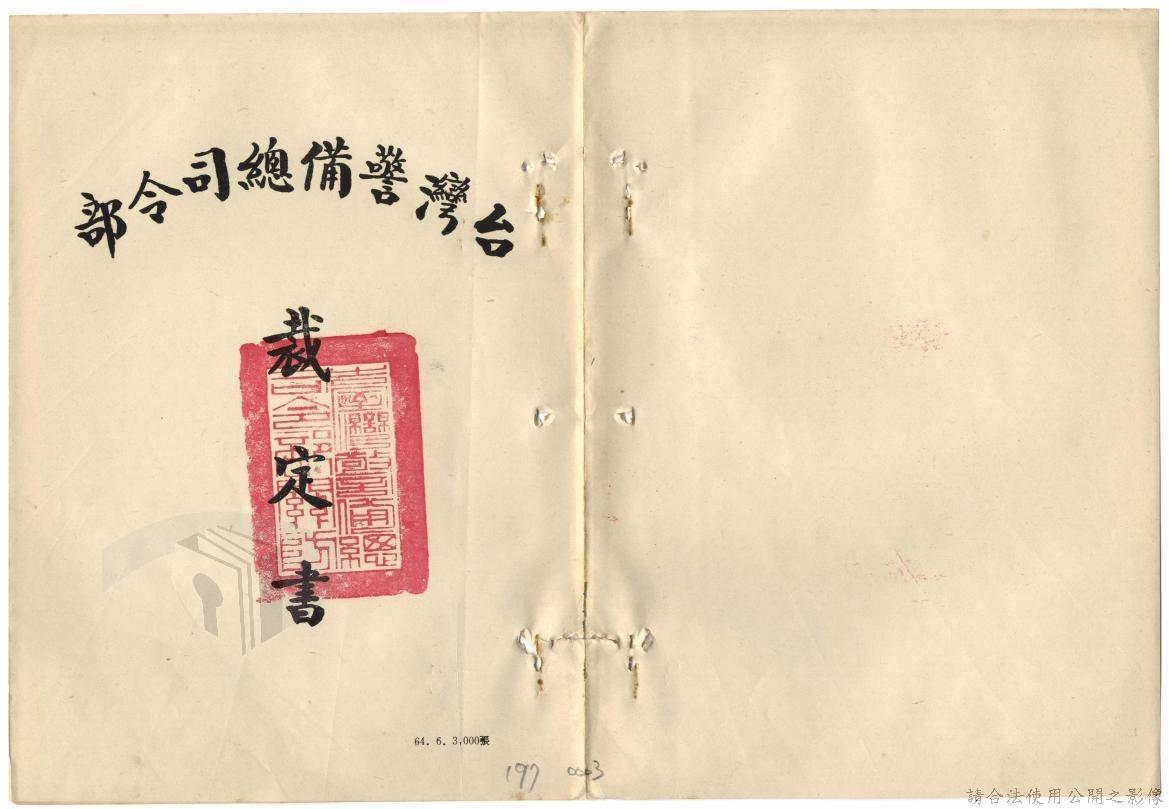 台灣警備總司令部
裁定書
臺灣警備總
司令部軍法
64. 6. 3,000張
197 0003
請合法使用公開之影像